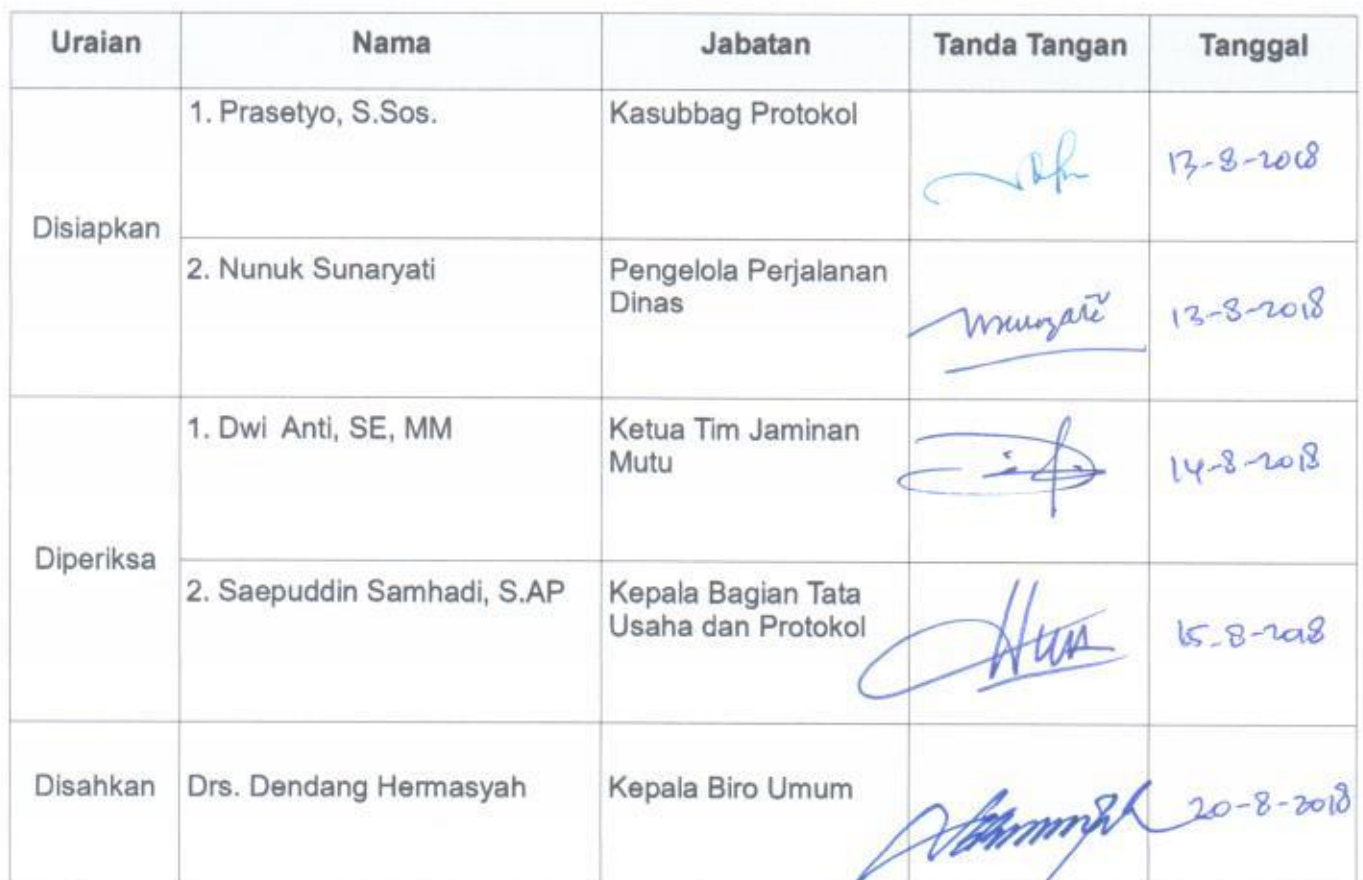 Uraian Nama Jabatan Tanda Tangan Tanggal
Disiapkan
1. Prasetyo, S.Sos. Kasubbag Protokol 13-8-2018
2. Nunuk Sunaryati Pengelola Perjalanan
Dinas
13-8-2018
Diperiksa
1. Dwi Anti, SE, MM Ketua Tim Jaminan
Mutu
14-8-2018
2. Saepuddin Samhadi, S.AP Kepala Bagian Tata
Usaha dan Protokol
15-8-2018
Disahkan Drs. Dendang Hermasyah Kepala Biro Umum 20-8-2018